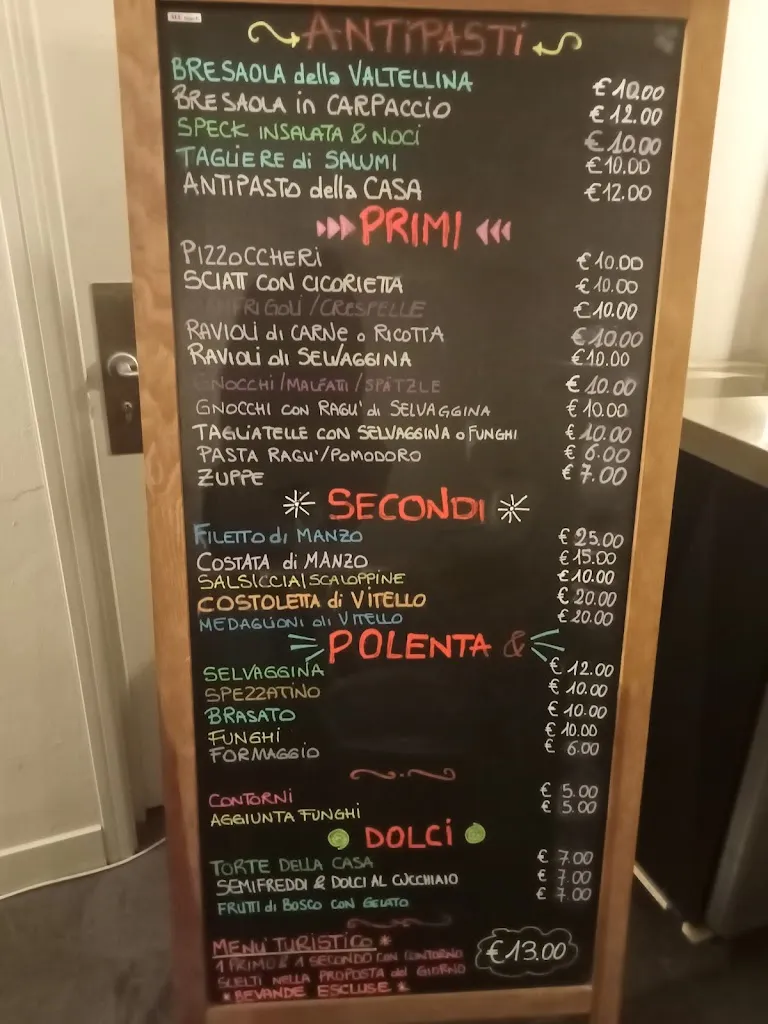 ANTIPASTI
BRESAOLA della VALTELLINA € 10.00
BRESAOLA in CARPACCIO € 12.00
SPECK INSALATA & NOCI € 10.00
TAGLIERE di SALUMI € 10.00
ANTIPASTO della CASA € 12.00
PRIMI
PIZZOCCHERI € 10.00
SCIATT CON CICORIETTA € 10.00
MANFRIGOLI / CRESPELLE € 10.00
RAVIOLI di CARNE o RICOTTA € 10.00
RAVIOLI di SELVAGGINA € 10.00
GNOCCHI / MALFATTI / SPÄTZLE € 10.00
GNOCCHI CON RAGU' di SELVAGGINA € 10.00
TAGLIATELLE CON SELVAGGINA o FUNGHI € 10.00
PASTA RAGU' / POMODORO € 6.00
ZUPPE € 7.00
SECONDI
FILETTO di MANZO € 25.00
COSTATA di MANZO € 15.00
SALSICCIA | SCALOPPINE € 10.00
COSTOLETTA di VITELLO € 20.00
MEDAGLIONI di VITELLO € 20.00
POLENTA &
SELVAGGINA € 12.00
SPEZZATINO € 10.00
BRASATO € 10.00
FUNGHI € 10.00
FORMAGGIO € 6.00
CONTORNI € 5.00
AGGIUNTA FUNGHI € 5.00
DOLCI
TORTE DELLA CASA € 7.00
SEMIFREDDI & DOLCI AL CUCCHIAIO € 7.00
FRUTTI di BOSCO CON GELATO € 7.00
MENU' TURISTICO * € 13.00
1 PRIMO & 1 SECONDO CON CONTORNO
SCELTI NELLA PROPOSTA del GIORNO
* BEVANDE ESCLUSE *